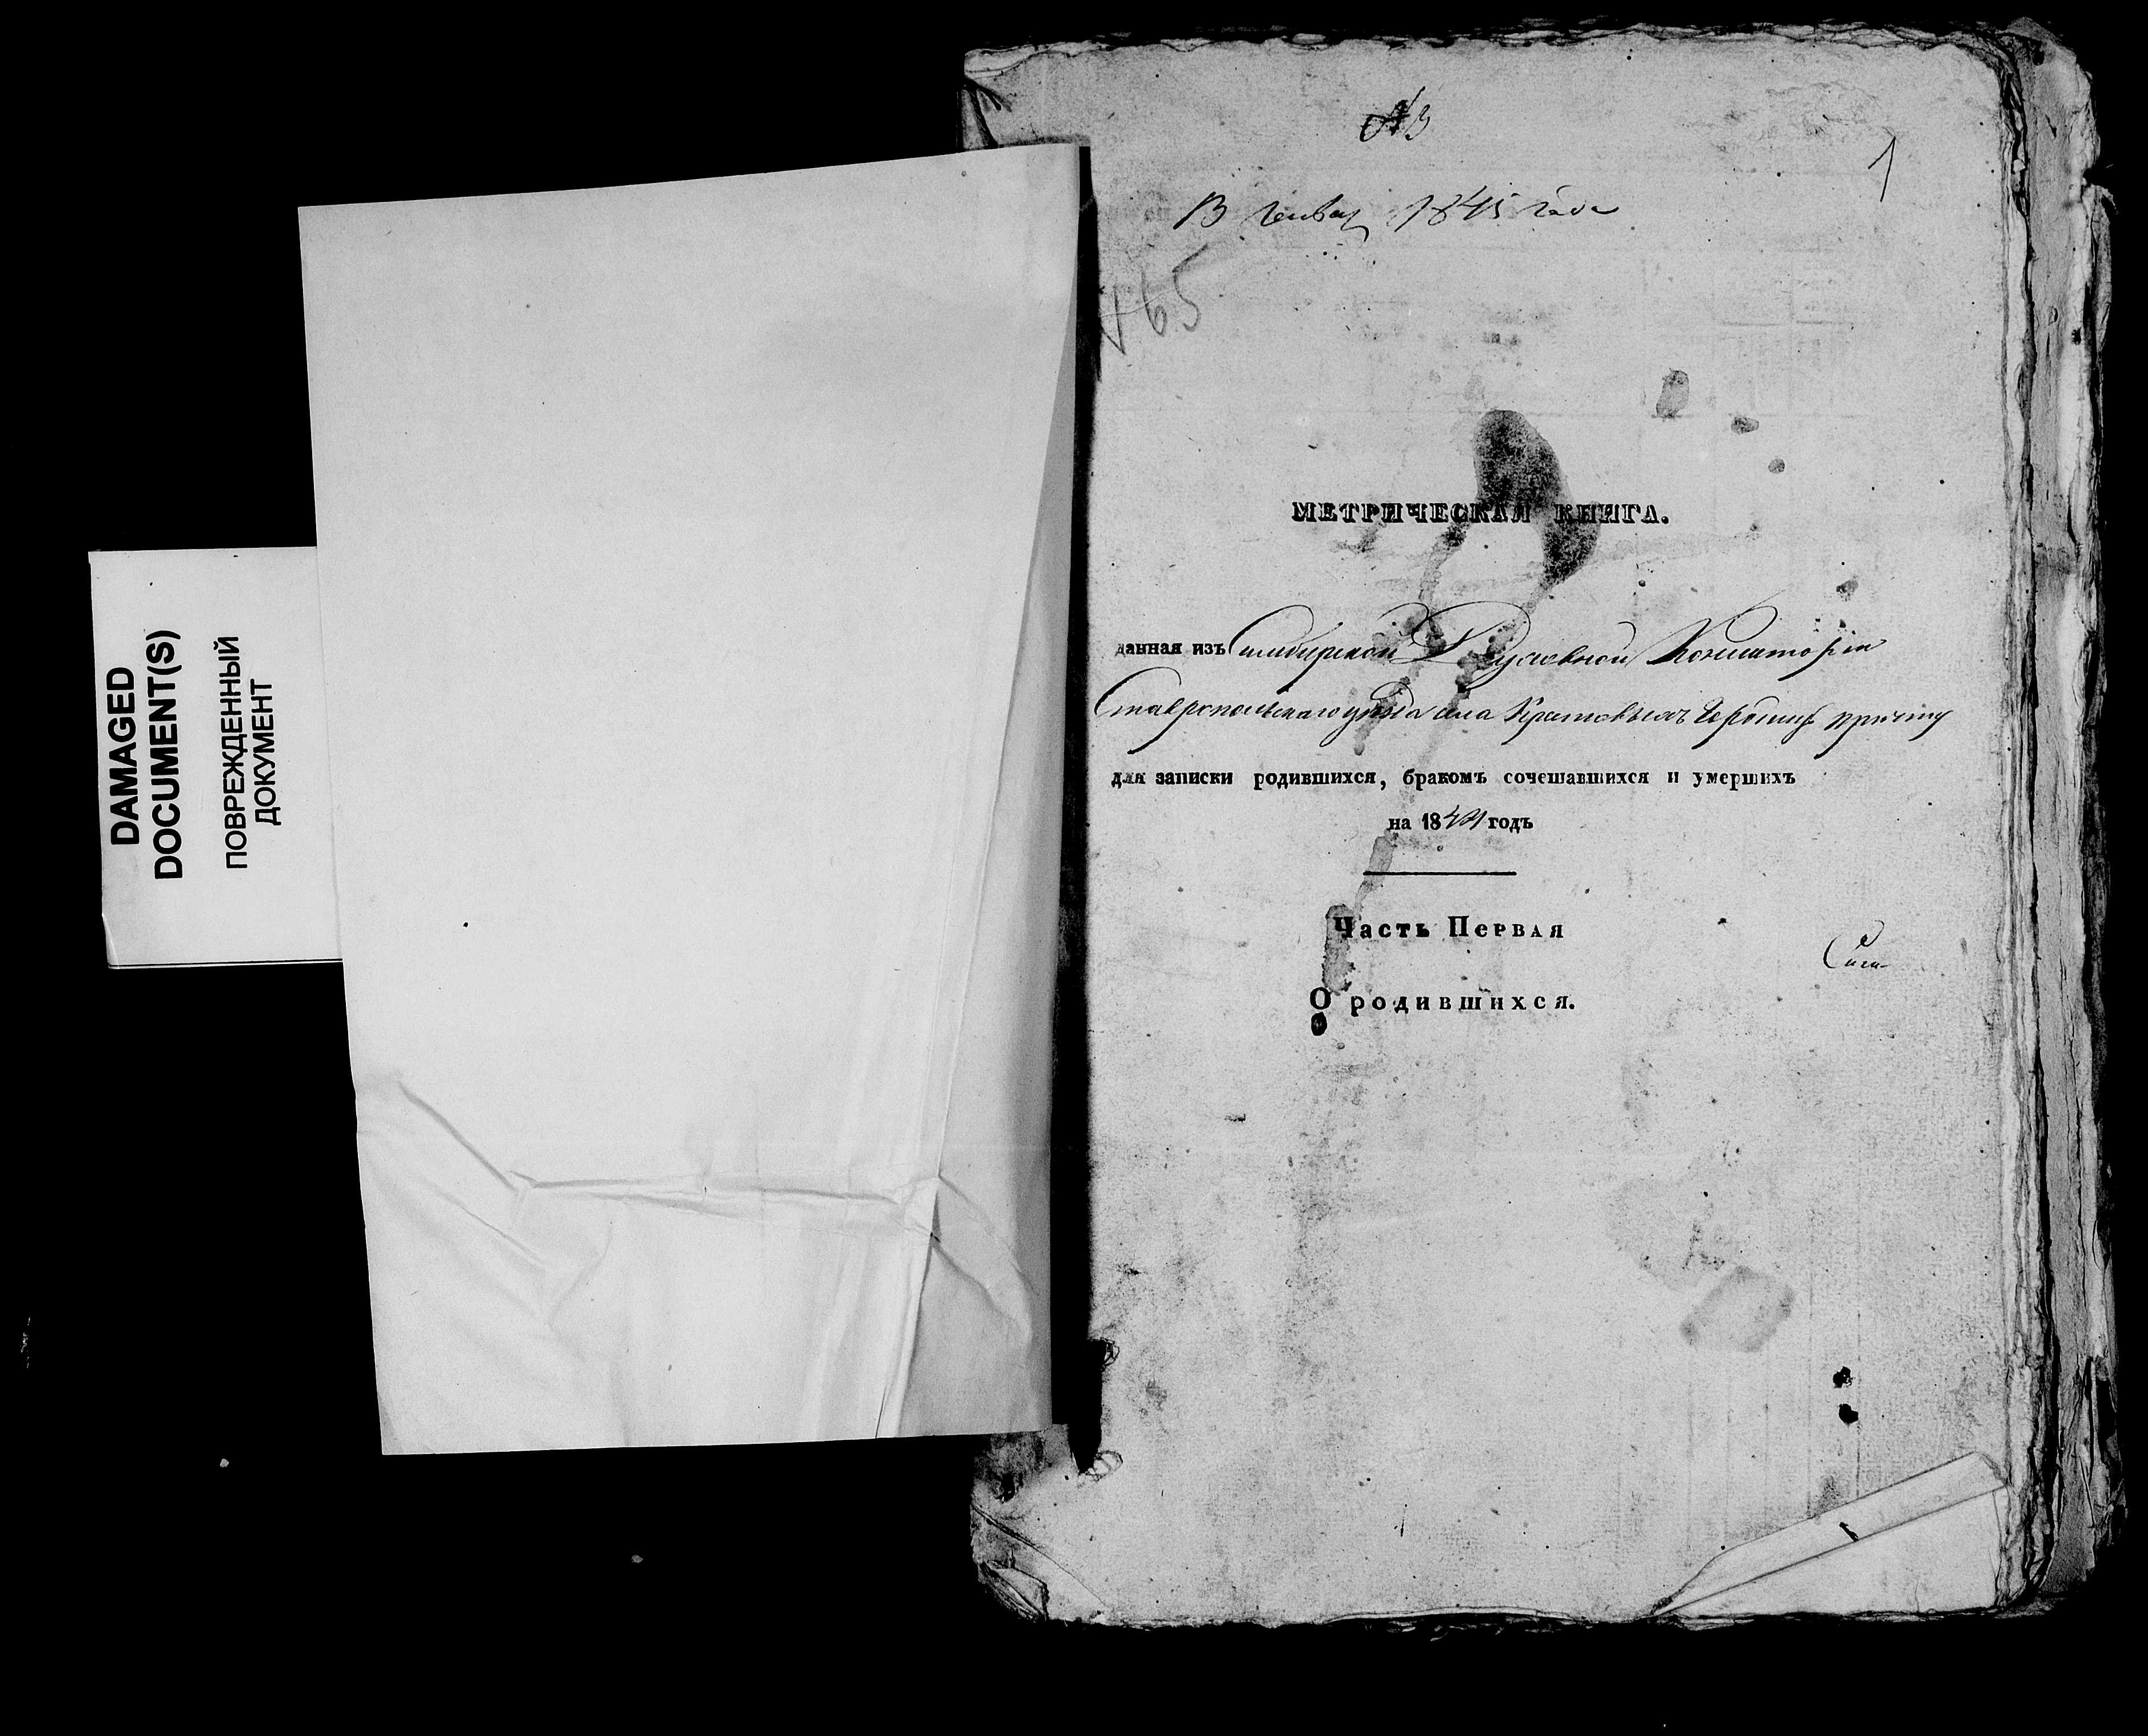 DAMAGED
DOCUMENT(S)
ПОВРЕЖДЕННЫЙ
ДОКУМЕНТ
1
1845 года
465
МЕТРИЧЕСКАЯ КНИГА.
данная изъ Симбирской Духовной Консисторіи
Ставропольскаго уѣзда села причту
для записки родившихся, бракомъ сочетавшихся и умершихъ
на 1844 годъ
Часть Первая
О родившихся.